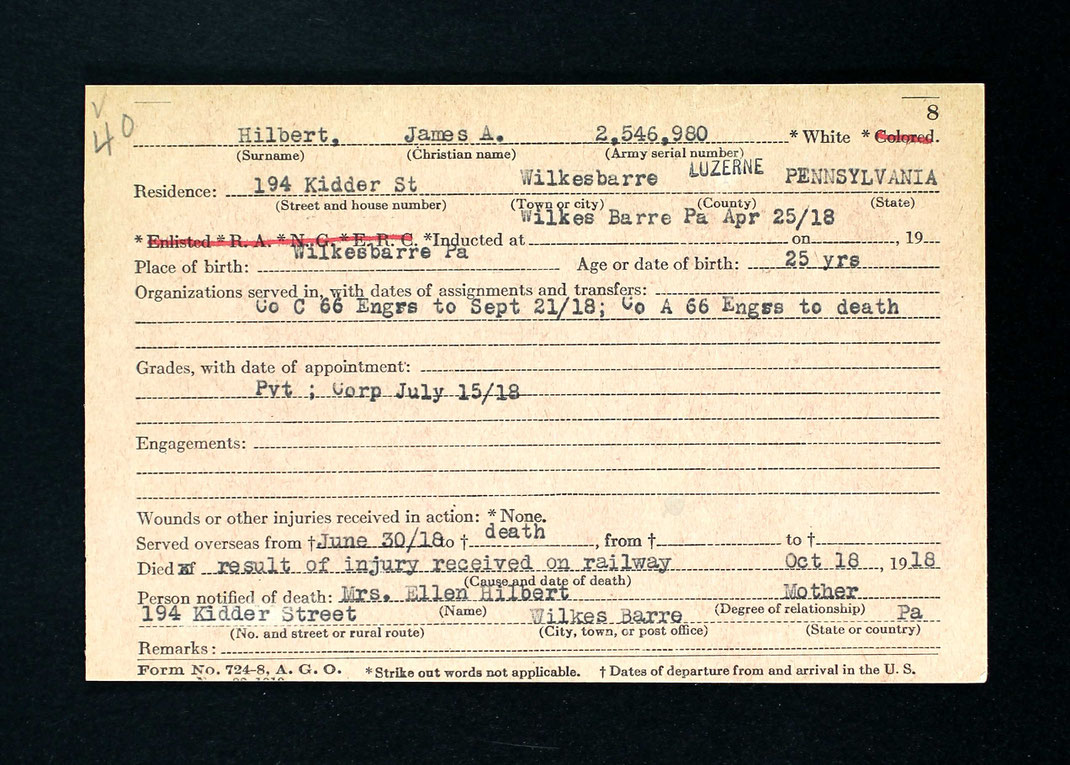 8
40
Hilbert, James A. 2,546,980 * White * Colored.
(Surname) (Christian name) (Army serial number)
Residence: 194 Kidder St Wilkesbarre LUZERNE PENNSYLVANIA
(Street and house number) (Town or city) (County) (State)
Wilkes Barre Pa Apr 25/18
* Enlisted * R. A. * N. G. * E. R. C. *Inducted at on , 19
Wilkesbarre Pa
Place of birth: Age or date of birth: 25 yrs
Organizations served in, with dates of assignments and transfers:
Co C 66 Engrs to Sept 21/18; Co A 66 Engrs to death
Grades, with date of appointment:
Pvt ; Corp July 15/18
Engagements:
Wounds or other injuries received in action: * None.
Served overseas from † June 30/18 to † death , from † to †
Died of result of injury received on railway Oct 18 , 1918
(Cause and date of death)
Person notified of death: Mrs. Ellen Hilbert Mother
(Name) (Degree of relationship)
194 Kidder Street Wilkes Barre Pa
(No. and street or rural route) (City, town, or post office) (State or country)
Remarks:
Form No. 724-8, A. G. O. * Strike out words not applicable. † Dates of departure from and arrival in the U. S.